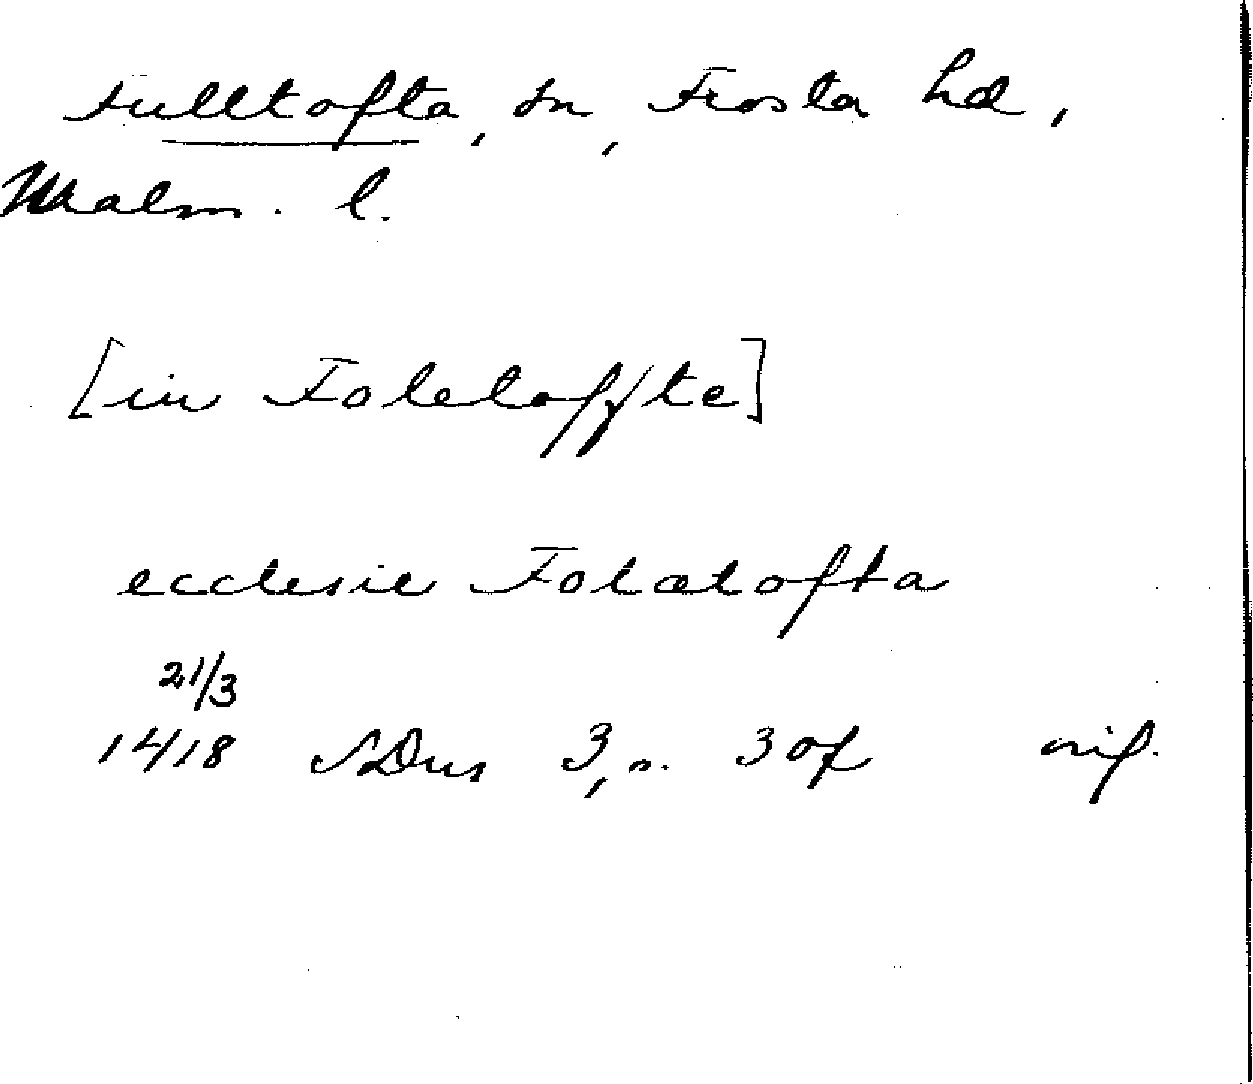 Fulltofta, sn, Frosta hd,
Malm. l.
[in Foletoffte]
ecclesie Folætofta
21/3
1418 SDns 3, s. 30f orig.